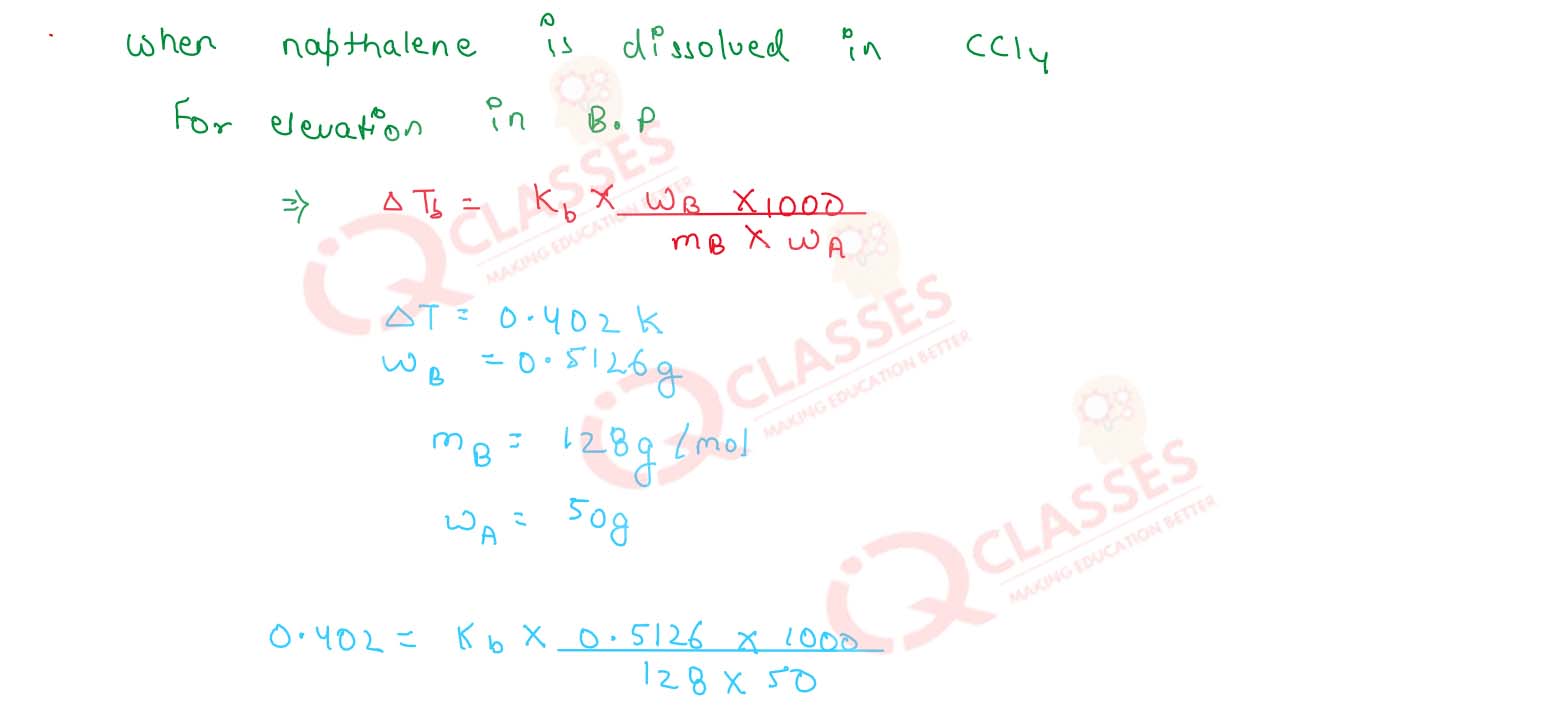 when napthalene is dissolved in CCl4
For elevation in B.P
⇒ ΔTb = Kb × WB × 1000 / mB × WA
ΔT = 0.402 K
WB = 0.5126g
mB = 128g/mol
WA = 50g
0.402 = Kb × 0.5126 × 1000 / 128 × 50
IQ CLASSES
MAKING EDUCATION BETTER
IQ CLASSES
MAKING EDUCATION BETTER
IQ CLASSES
MAKING EDUCATION BETTER